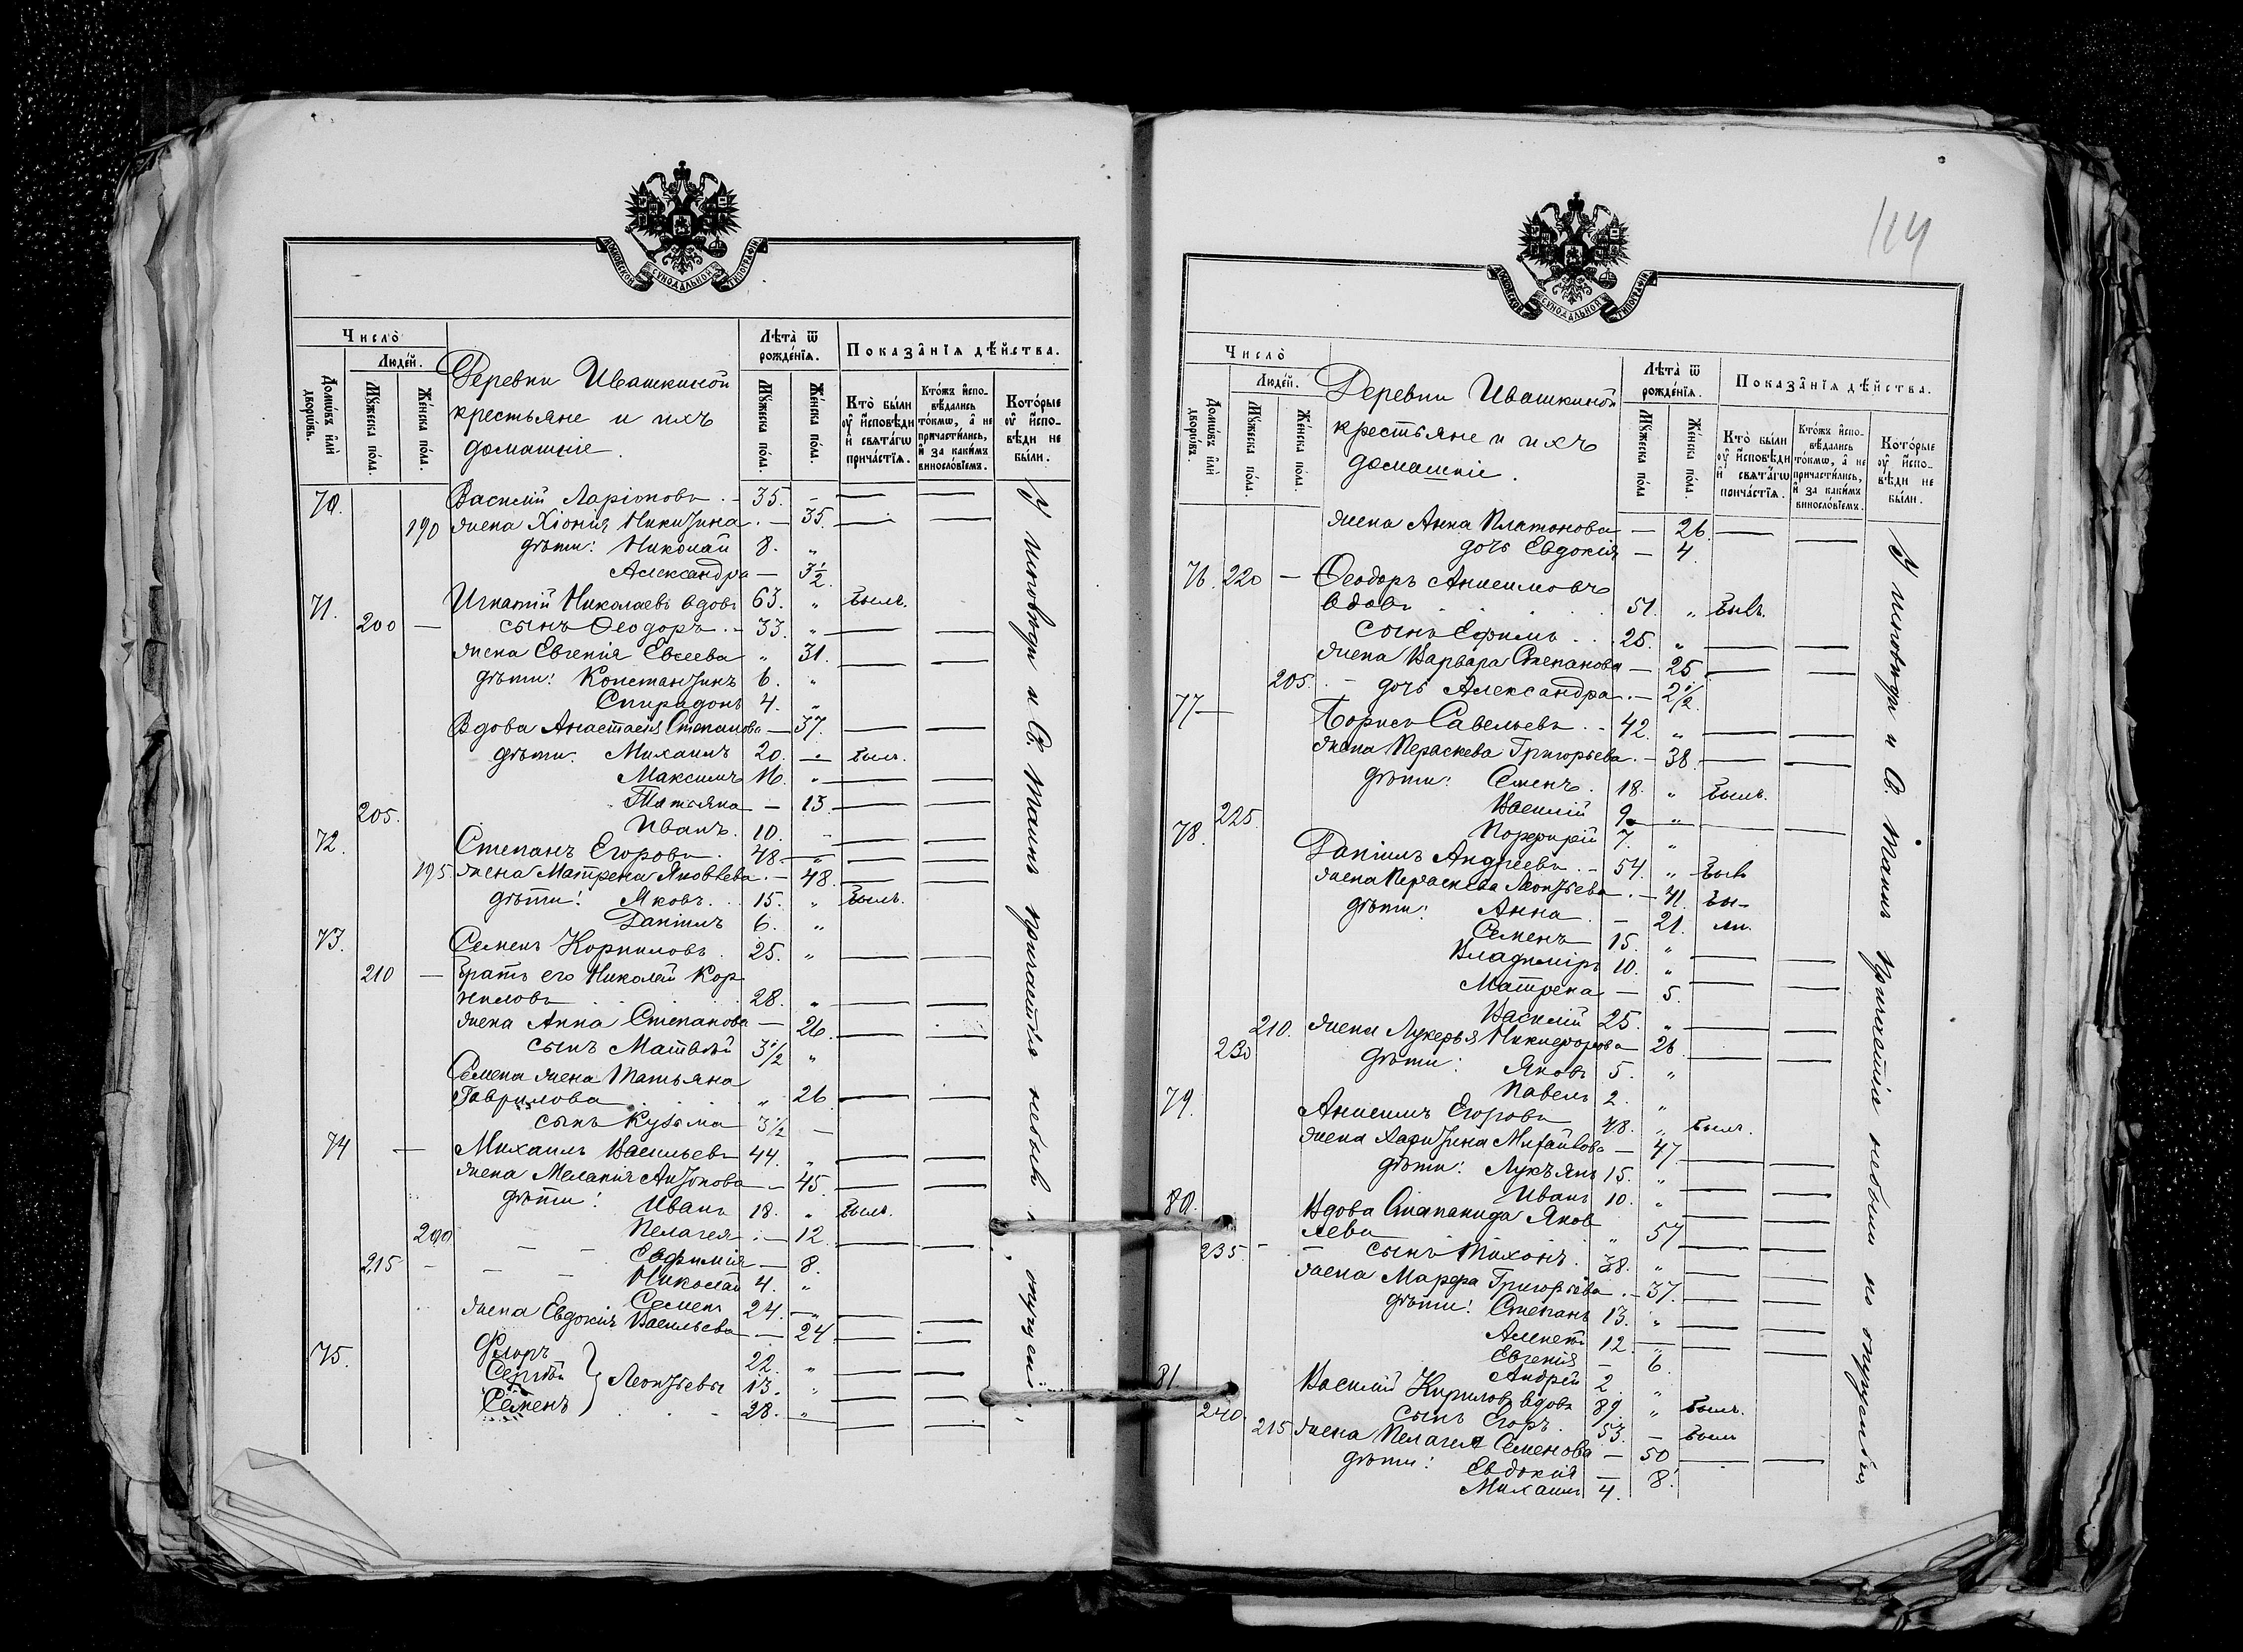 Московской Сѵнодальной Типографіи
Число̀
Людей.
Домѡвъ или дворѡвъ.
Мꙋжеска пола.
Женска пола.
Деревни Ивашкиной
крестьяне и ихъ
домашніе.
Лѣта̀ ѿ рожденїѧ.
Мꙋжеска пола.
Женска пола.
Показанїѧ дѣйства.
Кто̀ были оу҆ и҆сповѣди и҆ свѧтагѡ причастїѧ.
Кто́жъ и҆сповѣдались то́кмѡ, а҆ не причастились, и҆ за какимъ винословїемъ.
Которые оу҆ и҆сповѣди не были.
70. Василій Ларіоновъ . – 35. –
190 жена Хіонія Никитина . – 35.
дѣти: Николай 8. „
Александра – 3½
71. Игнатій Николаевъ вдовъ 63. „ былъ.
200 – сынъ Ѳеодоръ . – 33. „
жена Евгенія Евсеева „ 31.
дѣти: Константинъ 6. „
Спиридонъ 4. „
Вдова Анастасія Степанова – 37.
дѣти: Михаилъ 20. – былъ.
Максимъ 16. „
Татьяна – 13.
205. Иванъ. 10. –
72. Степанъ Егоровъ . 48 – „
195. жена Матрена Яковлева . – 48.
дѣти: Яковъ . . 15. „ былъ.
Даніилъ 6. „
73. Семенъ Корниловъ . 25. „
210 – Братъ его Николай Кор
ниловъ . . . 28. „
жена Анна Степанова – 26.
сынъ Матвѣй 3½ „
Семена жена Татьяна
Гаврилова . . . „ 26.
сынъ Кузьма 3½ –
74 – Михаилъ Васильевъ 44. „
жена Меланія Антонова – 45.
дѣти: Иванъ 18. „ былъ.
200 Пелагея . – 12.
Евфимія – 8.
215 – Николай 4. „
Семенъ 24. – „
жена Евдокія Васильева – 24
75. Флоръ 22. „
Сергѣй } Леонтьевы 13. „
Семенъ 28. „
У исповѣди и Св. таинъ причастія небыли по опущенію
114
Московской Сѵнодальной Типографіи
Число̀
Людей.
Домѡвъ или дворѡвъ.
Мꙋжеска пола
Женска пола.
Деревни Ивашкиной
крестьяне и ихъ
домашніе.
Лѣта̀ ѿ рожденїѧ.
Мꙋжеска пола
Женска пола.
Показанїѧ дѣйства.
Кто̀ были оу҆ и҆сповѣди и҆ свѧтагѡ причастїѧ.
Кто́жъ и҆сповѣдались то́кмѡ, а҆ не причастились, и҆ за какимъ винословїемъ.
Которые оу҆ и҆сповѣди не были.
жена Анна Платонова – 26.
дочь Евдокія – 4.
76. 220 – Ѳеодоръ Анисимовъ
вдовъ . . . 51. „ былъ.
сынъ Ефимъ . . 25. „
жена Варвара Степанова – 25.
205. – дочь Александра . – 2½.
77 – Борисъ Савельевъ . . 42. „
жена Параскева Григорьева . – 38.
дѣти: Семенъ . 18. „ былъ.
Василій 9 „
225. Порфирій 7. „
78. Даніилъ Андреевъ . – 54. „ былъ
жена Параскева Леонтьева . – 41. бы–
дѣти: Анна . – 21. ли.
Семенъ 15. „
Владиміръ 10. „
Матрена – 5.
Василій 25. „
210. жена Лукерья Никифорова – 26
230 дѣти: Яковъ 5. „
Павелъ 2. „
79. Анисимъ Егоровъ 48. „ былъ.
жена Харитина Михайлова – 47.
дѣти: Лукъянъ 15. „
Иванъ 10. „
80. Вдова Степанида Яков
лева „ 57
235. – – сынъ Тихонъ . 38. „
жена Марфа Григорьева . – 37.
дѣти: Степанъ 13. „
Алексѣй 12. „
Евгенія – 6.
Андрей 2 „
81. Василій Кириловъ вдовъ 89. „ былъ.
240. сынъ Егоръ . 53. – былъ
215 жена Пелагея Семенова – 50
дѣти: Евдокія – 8.
Михаилъ 4.
У исповѣди и Св. таинъ причастія небыли по опущенію